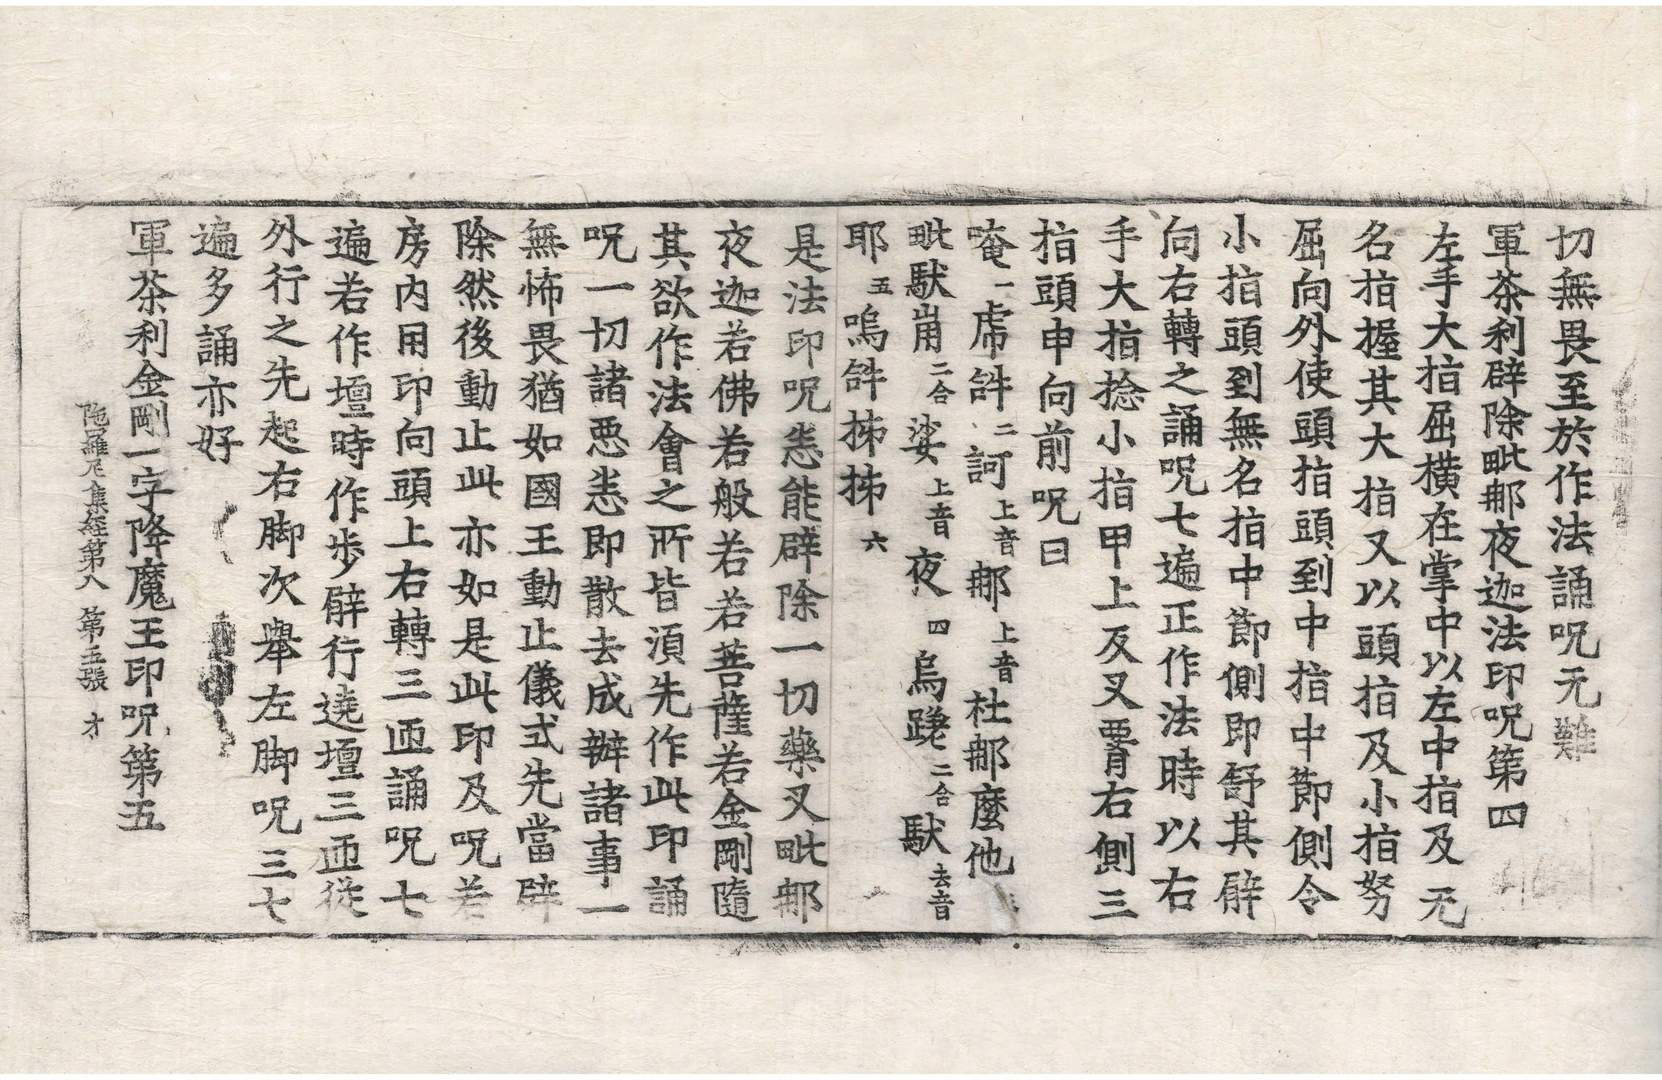 切無畏至於作法誦呪无難
軍茶利辟除毗那夜迦法印呪第四
左手大指屈橫在掌中以左中指及无
名指握其大指又以頭指及小指努
屈向外使頭指頭到中指中節側令
小指頭到無名指中節側即舒其臂
向右轉之誦呪七遍正作法時以右
手大指捻小指甲上反叉臂右側三
指頭申向前呪曰
唵一虎𤙖二訶上音那上音杜那麼他
毗馱崩二合娑上音夜四烏蹉二合馱去音
耶五嗚𤙖抹抹六
是法印呪悉能辟除一切藥叉毗那
夜迦若佛若般若若菩薩若金剛隨
其欲作法會之所皆須先作此印誦
呪一切諸惡悉即散去成辦諸事一
無怖畏猶如國王動止儀式先當辟
除然後動止此亦如是此印及呪若
房內用印向頭上右轉三匝誦呪七
遍若作壇時作步臂行遶壇三匝從
外行之先起右脚次舉左脚呪三七
遍多誦亦好
軍茶利金剛一字降魔王印呪第五
陁羅尼集經第八 第五張 才